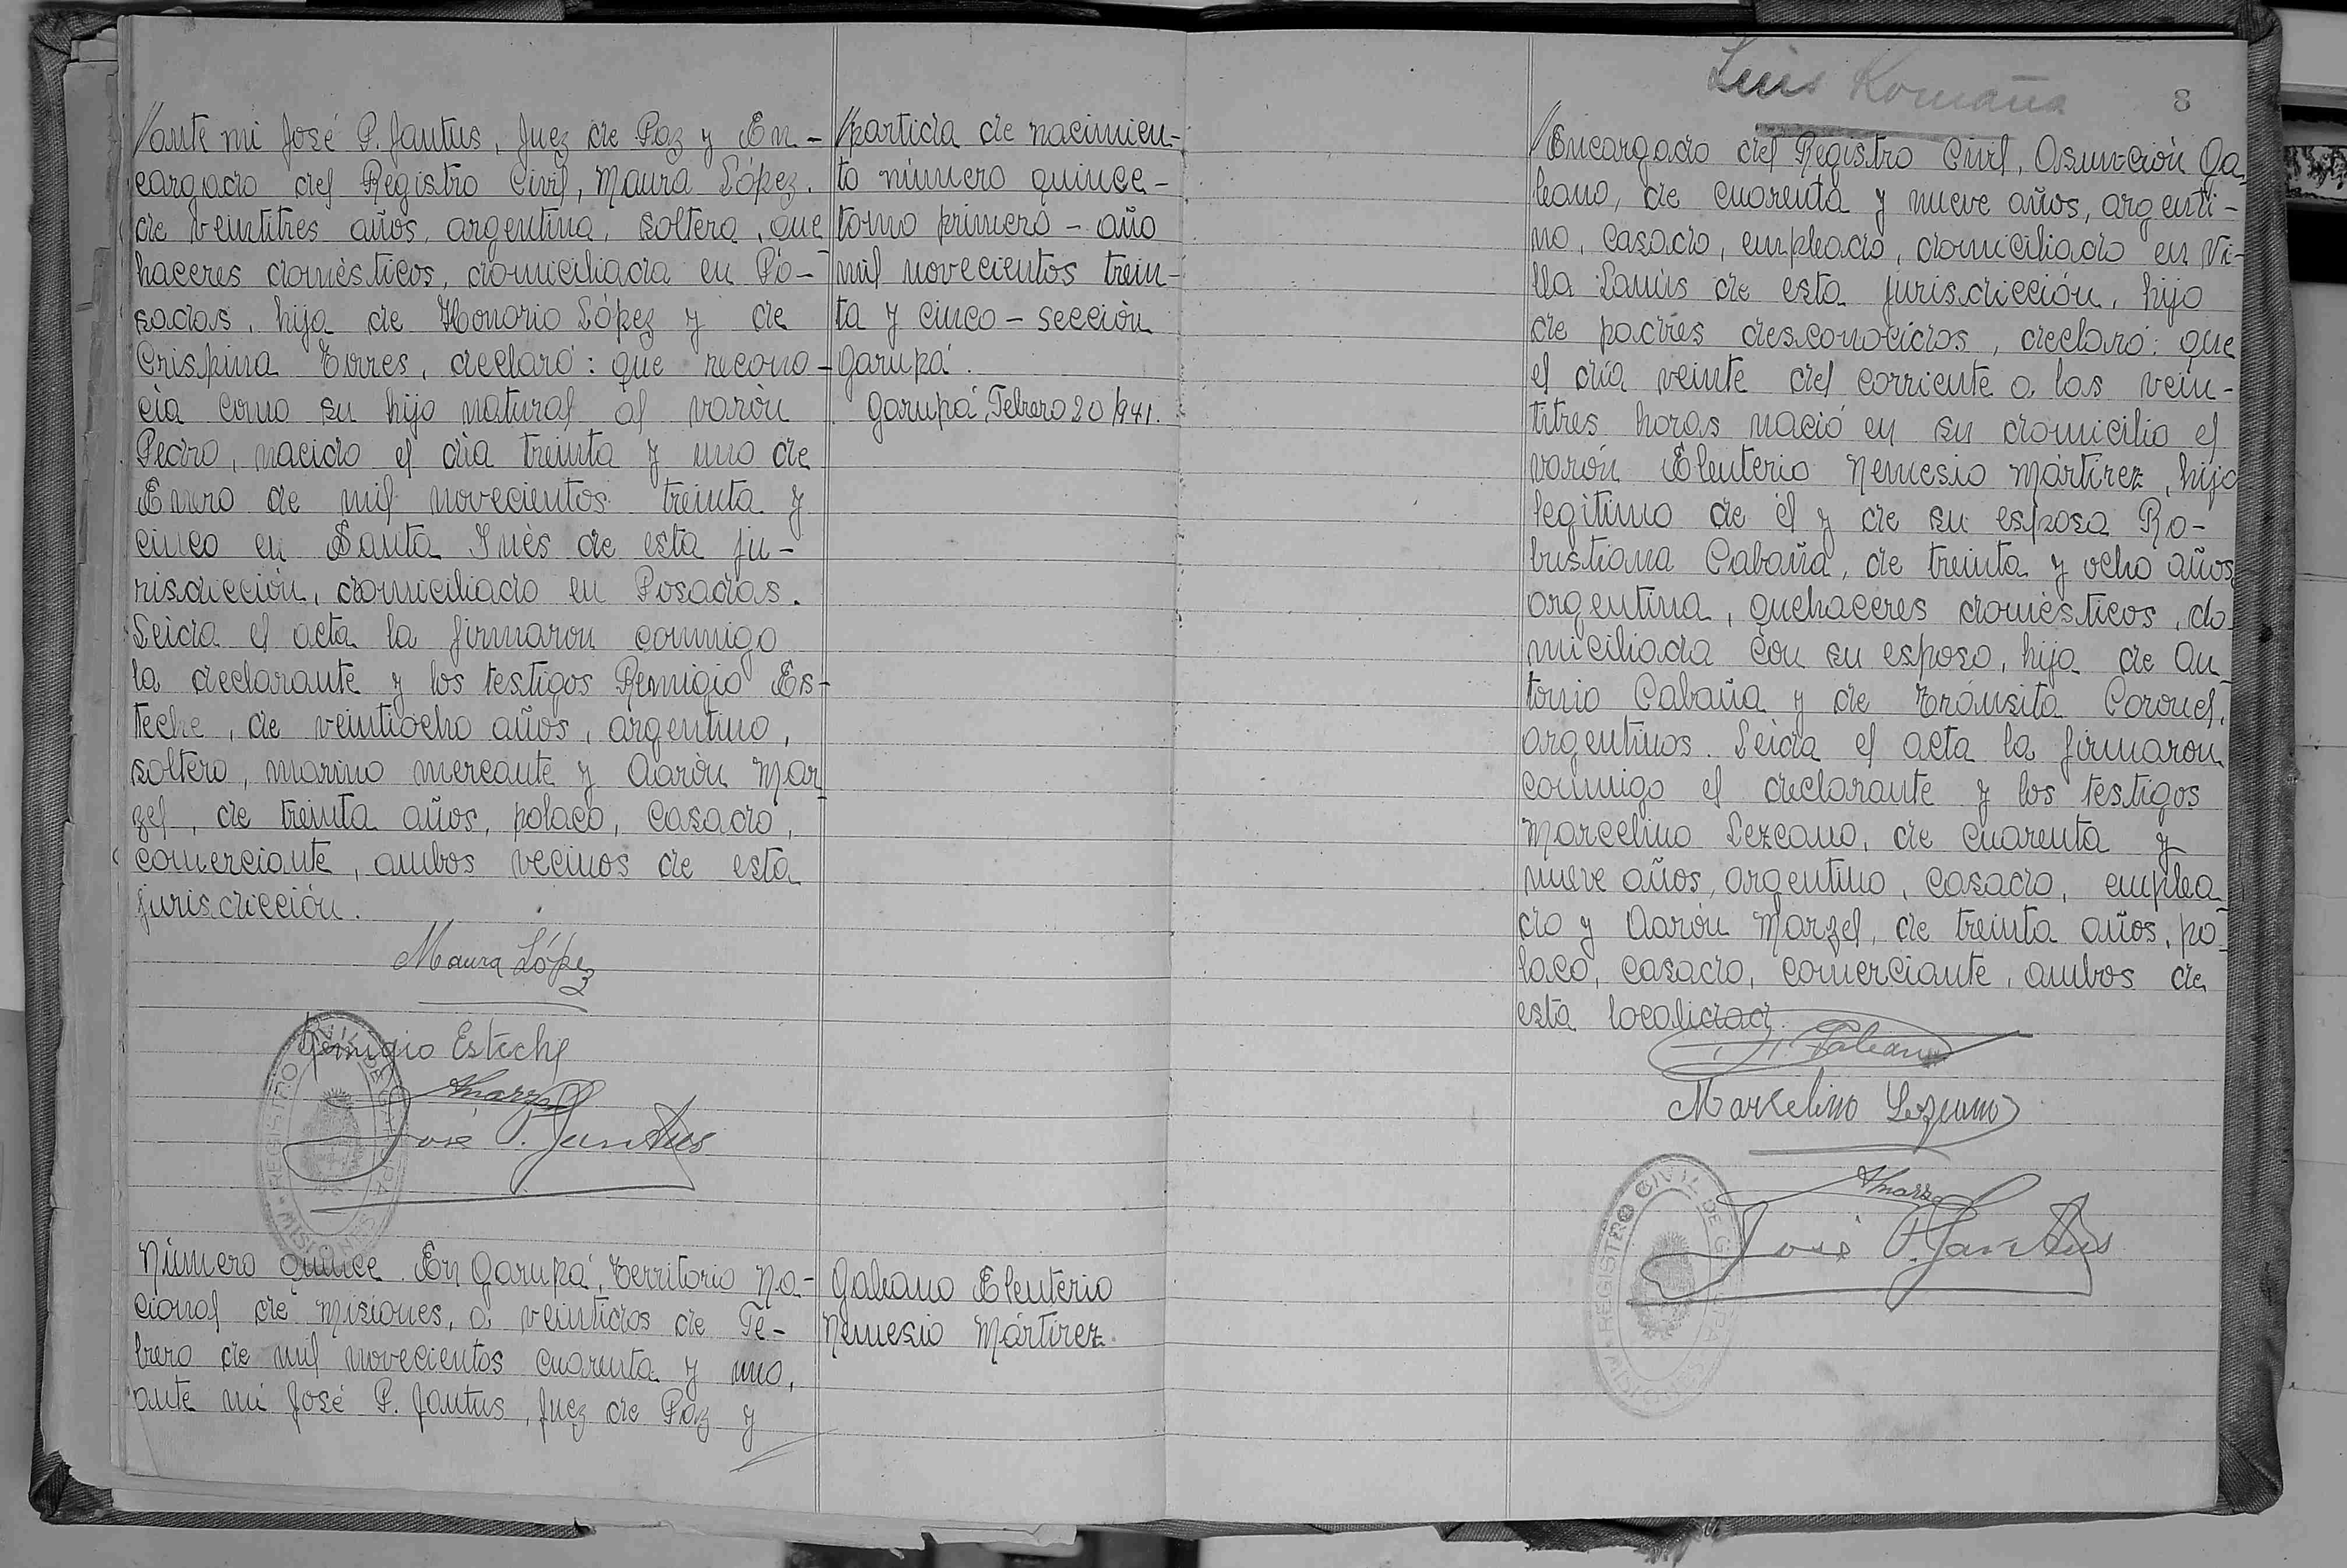 //ante mi José P. Jantus, Juez de Paz y En-
cargado del Registro Civil, Maura López.
de veintitres años, argentina, soltera, que
haceres domèsticos, domiciliada en Po-
sadas, hija de Honorio López y de
Crispina Torres, declaró: que recono-
cia como su hijo natural al varòn
Pedro, nacido el dia treinta y uno de
Enero de mil novecientos treinta y
cinco en Santa Inès de esta ju-
risdicción, domiciliado en Posadas.
Leida el acta la firmaron conmigo
la declarante y los testigos Remigio Es-
teche, de veintiocho años, argentino,
soltero, marino mercante y Aaròn Mar
zel, de treinta años, polaco, casado,
comerciante, ambos vecinos de esta
jurisdicción.
Maura López
Remigio Esteche
AMarzel
José P. Jantus
REGISTRO CIVIL DE GARUPA
MISIONES
//partida de nacimien-
to nùmero quince-
tomo primero - año
mil novecientos trein-
ta y cinco - sección
Garupá.
Garupá, Febrero 20/941.
Nùmero quince. En Garupá, Territorio Na-
cional de Misiones, a veintidos de Fe-
brero de mil novecientos cuarenta y uno,
ante mi José P. Jantus, Juez de Paz y
Galeano Eleuterio
Nemesio Mártirez.
Luis Romaña
8
//Encargado del Registro Civil, Asunción Ga
leano, de cuarenta y nueve años, argenti-
no, casado, empleado, domiciliado en Vi-
lla Lanús de esta jurisdicción, hijo
de padres desconocidos, declaró: que
el día veinte del corriente a las vein-
titres horas nació en su domicilio el
varón Eleuterio Nemesio Mártirez, hijo
legitimo de él y de su esposa Ro-
bustiana Cabaña, de treinta y ocho años,
argentina, quehaceres domèsticos, do
miciliada con su esposo, hija de An
tonio Cabaña y de Tránsita Coronel,
argentinos. Leida el acta la firmaron
conmigo el declarante y los testigos
Marcelino Lezcano, de cuarenta y
nueve años, argentino, casado, emplea
do y Aaròn Marzel, de treinta años, po
laco, casado, comerciante, ambos de
esta localidad.
Galeano
Marcelino Lezcano
AMarzel
José P. Jantus
REGISTRO CIVIL DE GARUPA